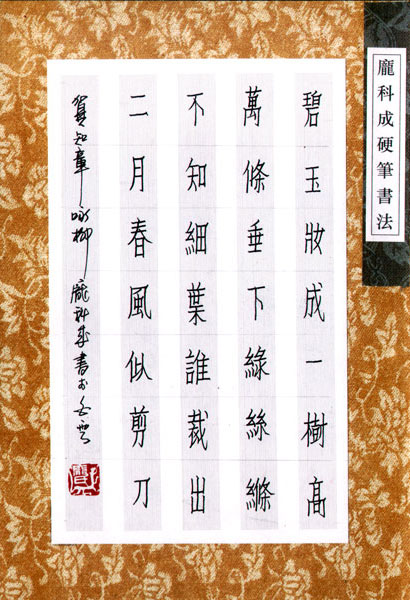 龐科成硬筆書法
碧玉妝成一樹高
萬條垂下綠絲縧
不知細葉誰裁出
二月春風似剪刀
賀知章 咏柳 龐科成書於